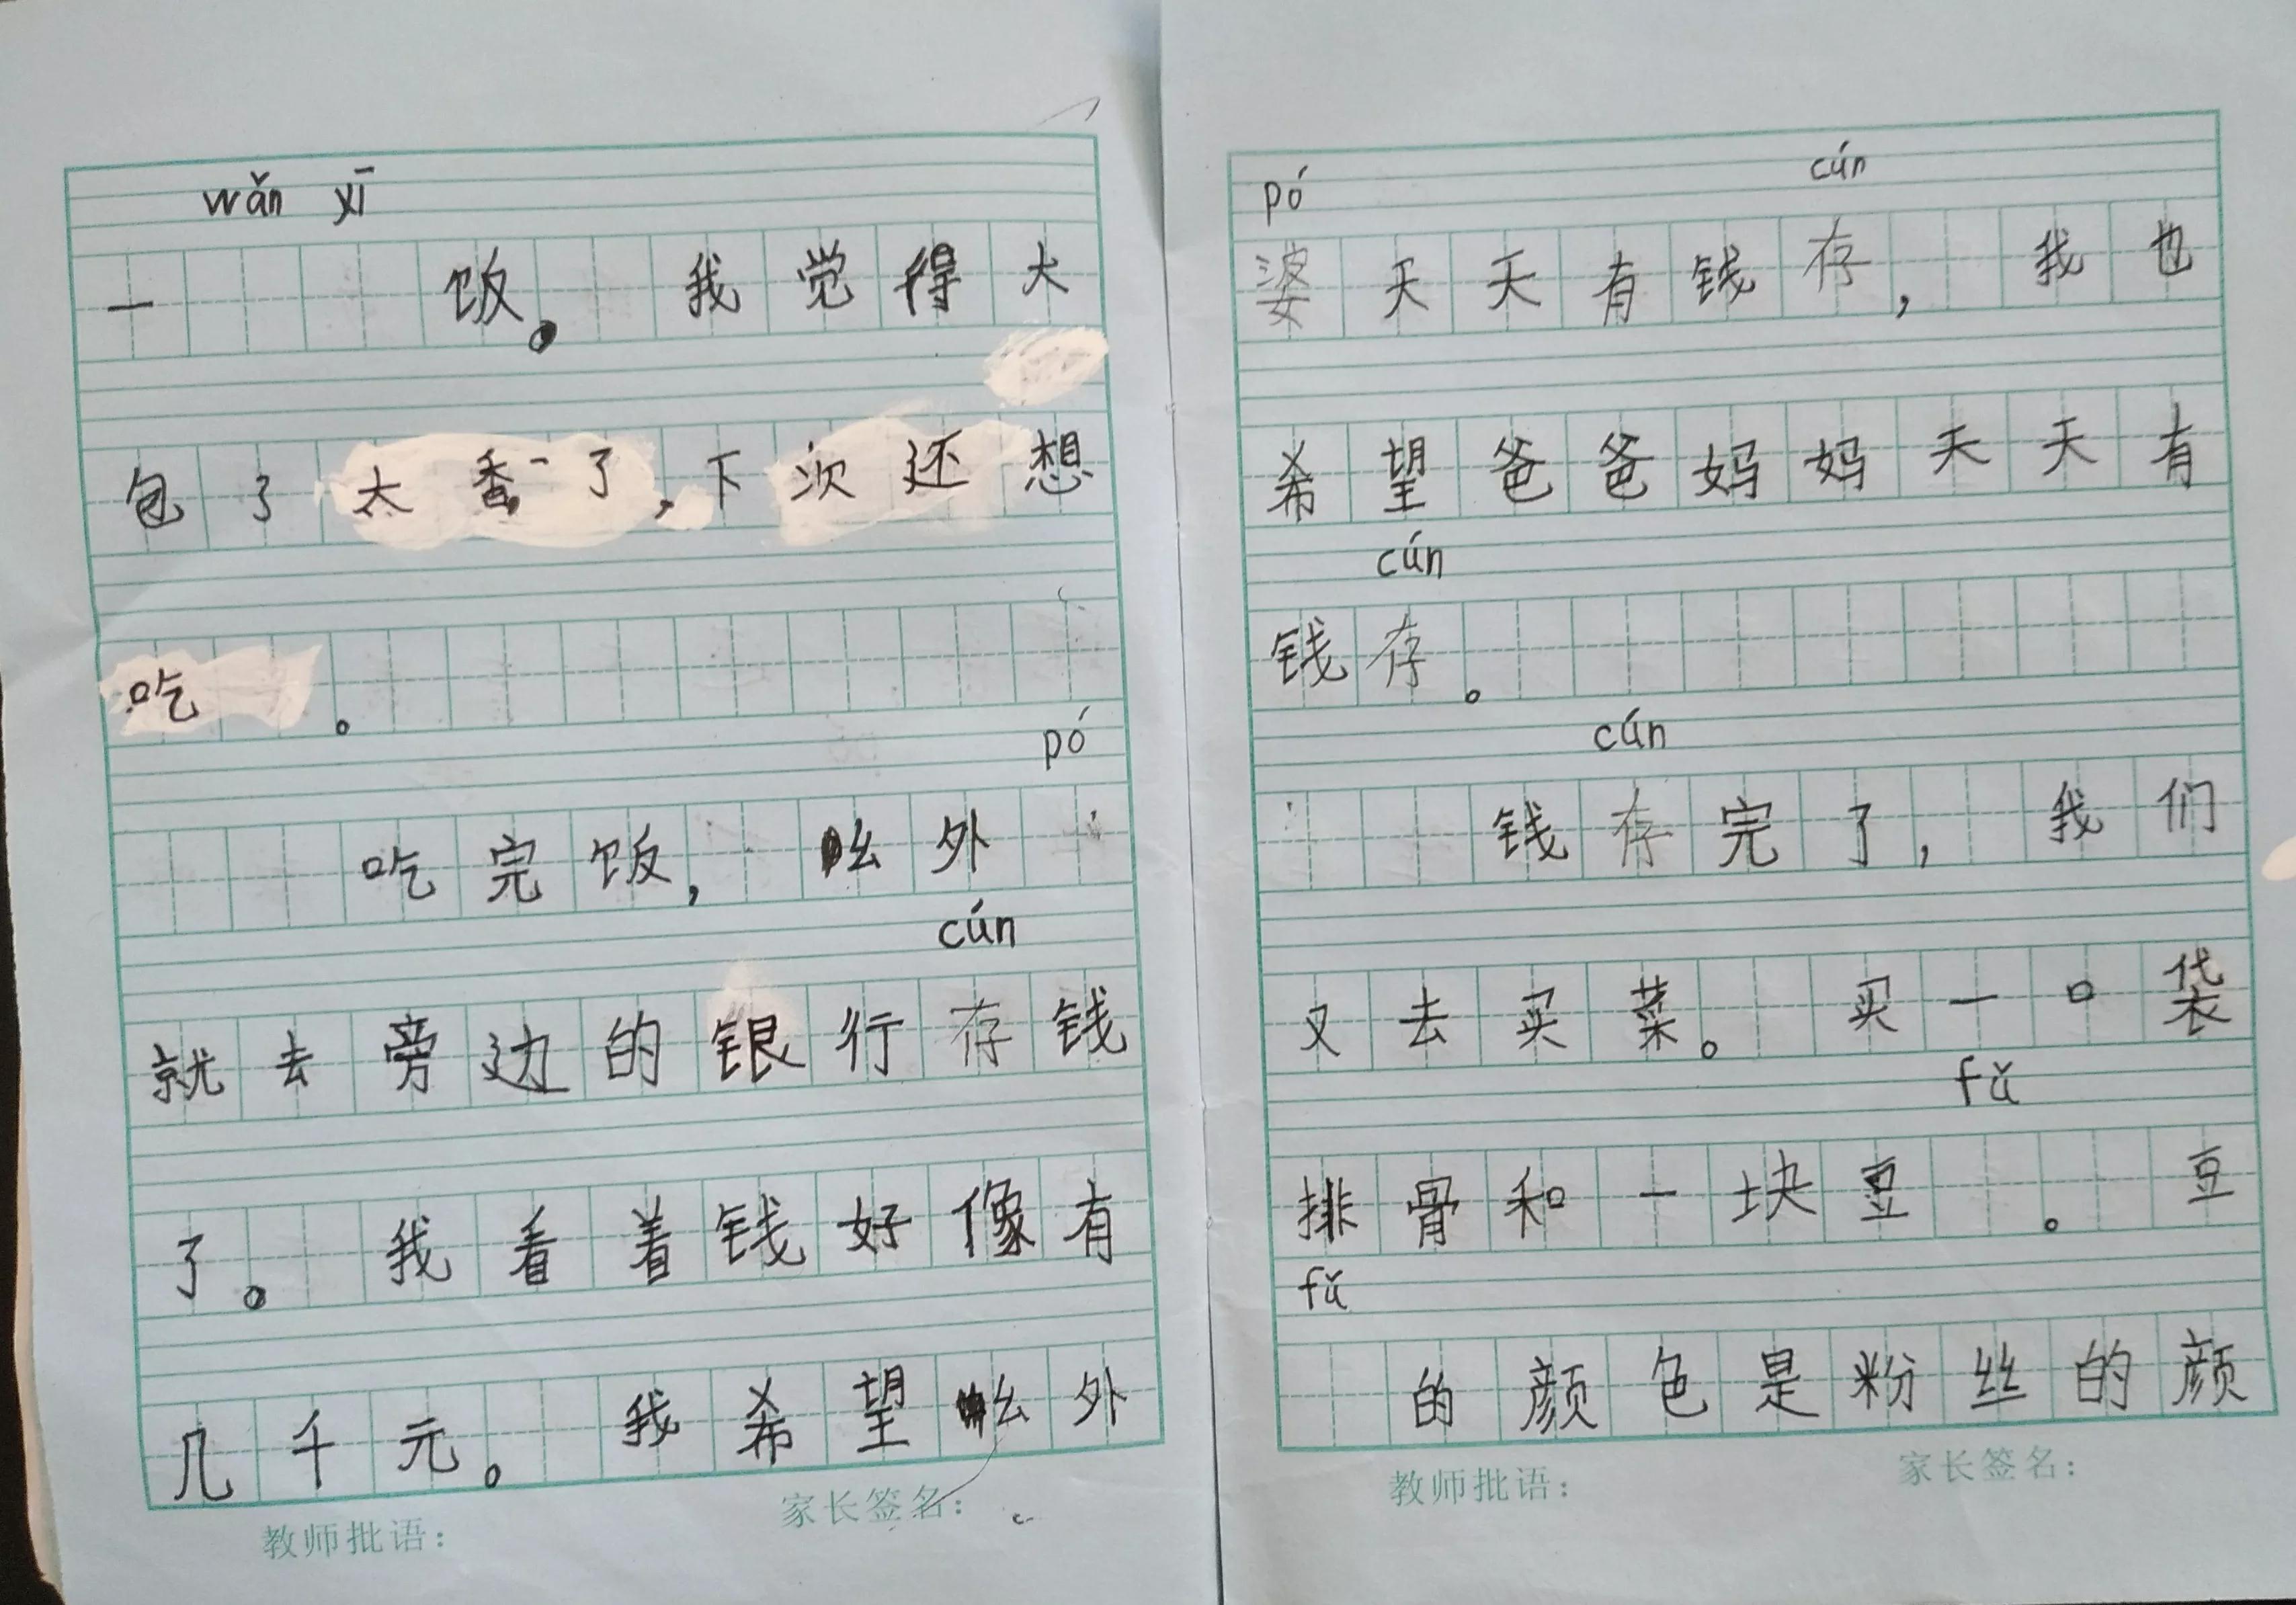 wǎn xī
一 饭。 我觉得大
包了太香了,下次还想
吃 。
pó
吃完饭, 幺外
cún
就去旁边的银行存钱
了。 我看着钱好像有
几千元。 我希望幺外
教师批语: 家长签名:
pó cún
婆天天有钱存, 我也
希望爸爸妈妈天天有
cún
钱存。
cún
钱存完了, 我们
又去买菜。 买一口袋
fǔ
排骨和一块豆 。 豆
fǔ
的颜色是粉丝的颜
教师批语: 家长签名: